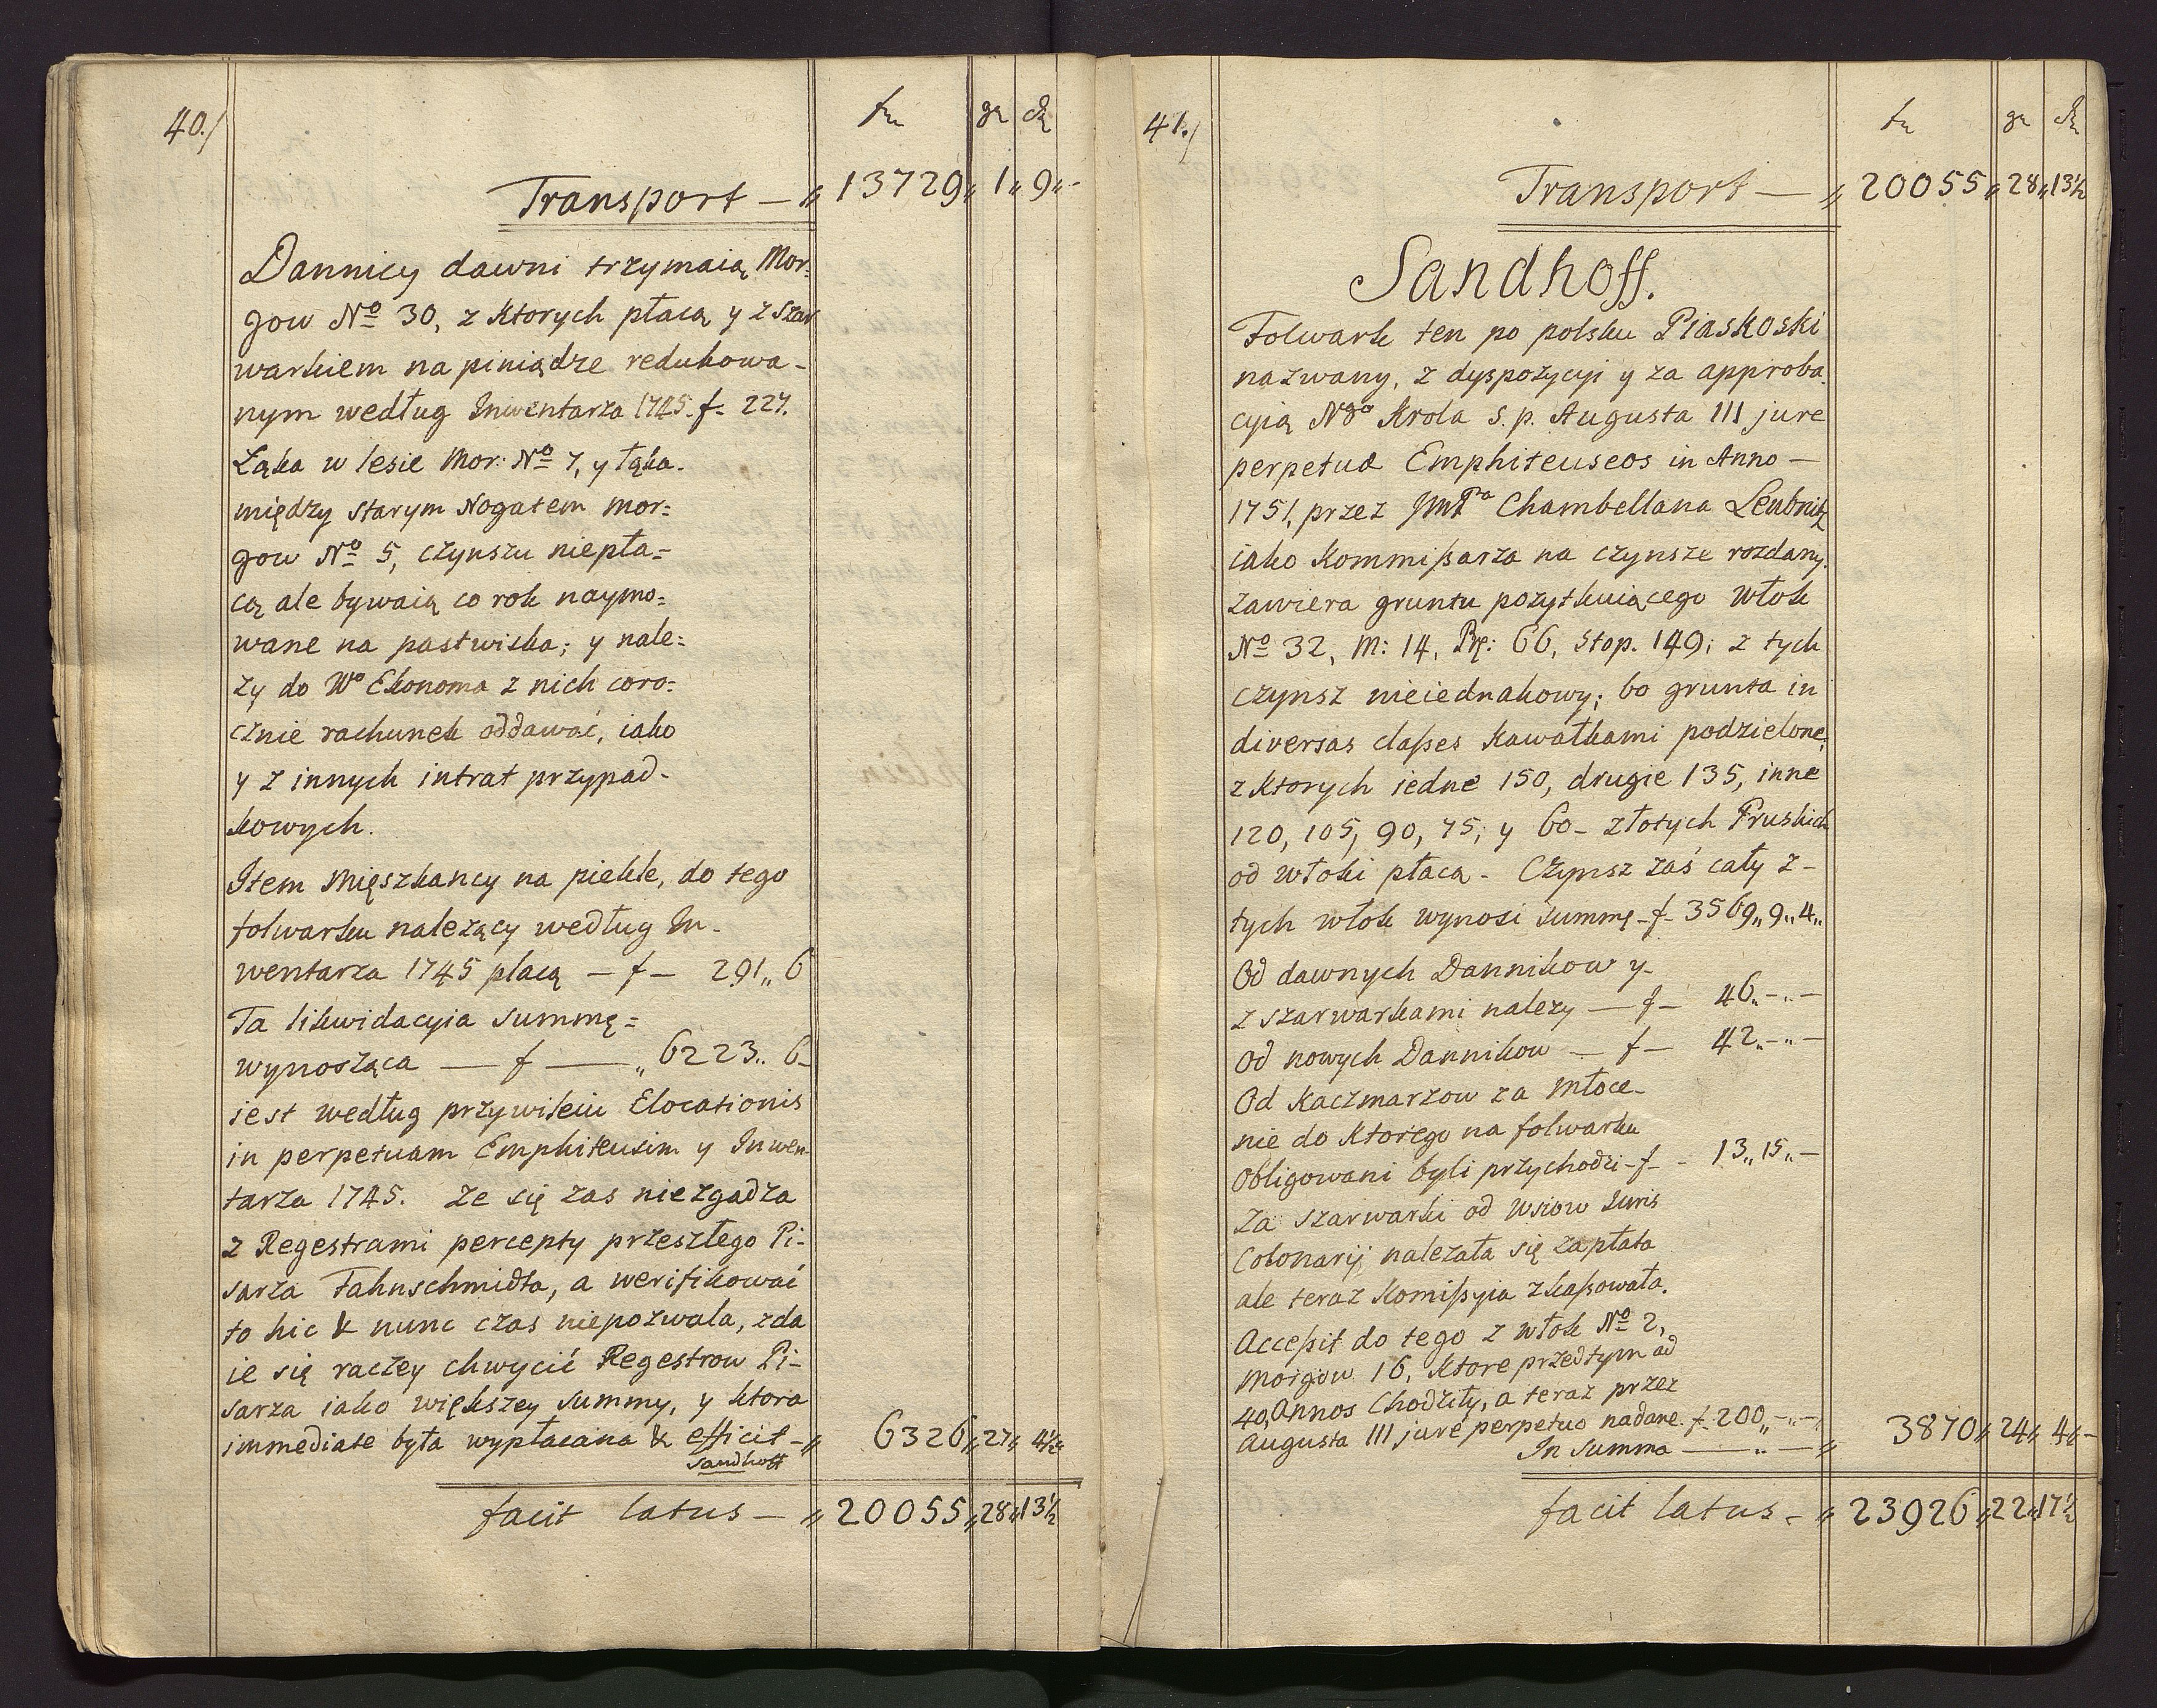 40./
fn gr dn
Transport — „ 13729„ 1„ 9„-
Dannicy dawni trzymaią Mor:
gow No 30, z Ktorych płacą y z szar
warkiem na piniądze redukowa-
nym według Inwentarza 1745. f- 227.
Łąka w lesie Mor: No 7, y łąka.
między starym Nogatem mor:
gow No 5, czynszu niepła=
cą ale bywaią co rok naymo:
wane na pastwiska; y nale:
zy do Wo Ekonoma z nich coro:
cznie rachunek oddawać, iako
y z innych intrat przypad-
kowych.
Item Mięszkancy na piekle, do tego
folwarku nalezący według In-
wentarza 1745 płacą — f — 291„ 6
Ta likwidacyia summę=
wynosząca — f — „ 6223„ 6-
iest według przywileiu Elocationis
in perpetuam Emphiteusim y Inwen
tarza 1745. Ze się zas niezgadza
z Regestrami percepty przeszłego Pi-
sarza Fahnschmidta, a werifikować
to hic & nunc czas niepozwala, zda
ie się raczey chwycić Regestrow Pi-
sarza iako większey summy, y ktora
immediate była wypłacana & efficit -„ 6326„ 27„ 4½
Sandhoff
facit latus — „ 20055„ 28„ 13½
41./
fn gr dn
Transport — „ 20055„ 28„ 13½
Sandhoff.
Folwark ten po polsku Piaskoski
nazwany, z dyspozycyi y za approba
cyią Ngo Krola s. p. Augusta III jure
perpetuo Emphiteuseos in Anno —
1751, przez JmPa Chambellana Leubnitz
iako Kommißarza na czynsze rozdany.
Zawiera gruntu pozytkuiącego Włok
No 32, M: 14, Prę: 66, Stop. 149; z tych
czynsz nieiednakowy; bo grunta in
diversas claßes kawałkami podzielone;
z Ktorych iedne 150, drugie 135, inne
120, 105, 90, 75, y 60- złotych Pruskich
od włoki płacą - Czynsz zaś cały z -
tych włok wynosi summę -f- 3569„ 9„ 4„
Od dawnych Dannikow y-
z szarwarkami nalezy — f - 46„-„-
Od nowych Dannikow — f - 42„-„-
Od Kaczmarzow za Młoce-
nie do Ktorego na folwarku
obligowani byli przychodzi -f- - 13„ 15„-
Za szarwarki od wsiow Iuris
Colonarij nalezała się zapłata
ale teraz Komißyia zkaßowała.
Acceßit do tego z włok No 2,
Morgow 16, Ktore przedtym ad
40 Annos Chodziły, a teraz przez
Augusta III jure perpetuo nadane. f- 200„-„-
In Summa — „ — „ 3870„ 24„ 4„-
facit latus - „ 23926„ 22„ 17½